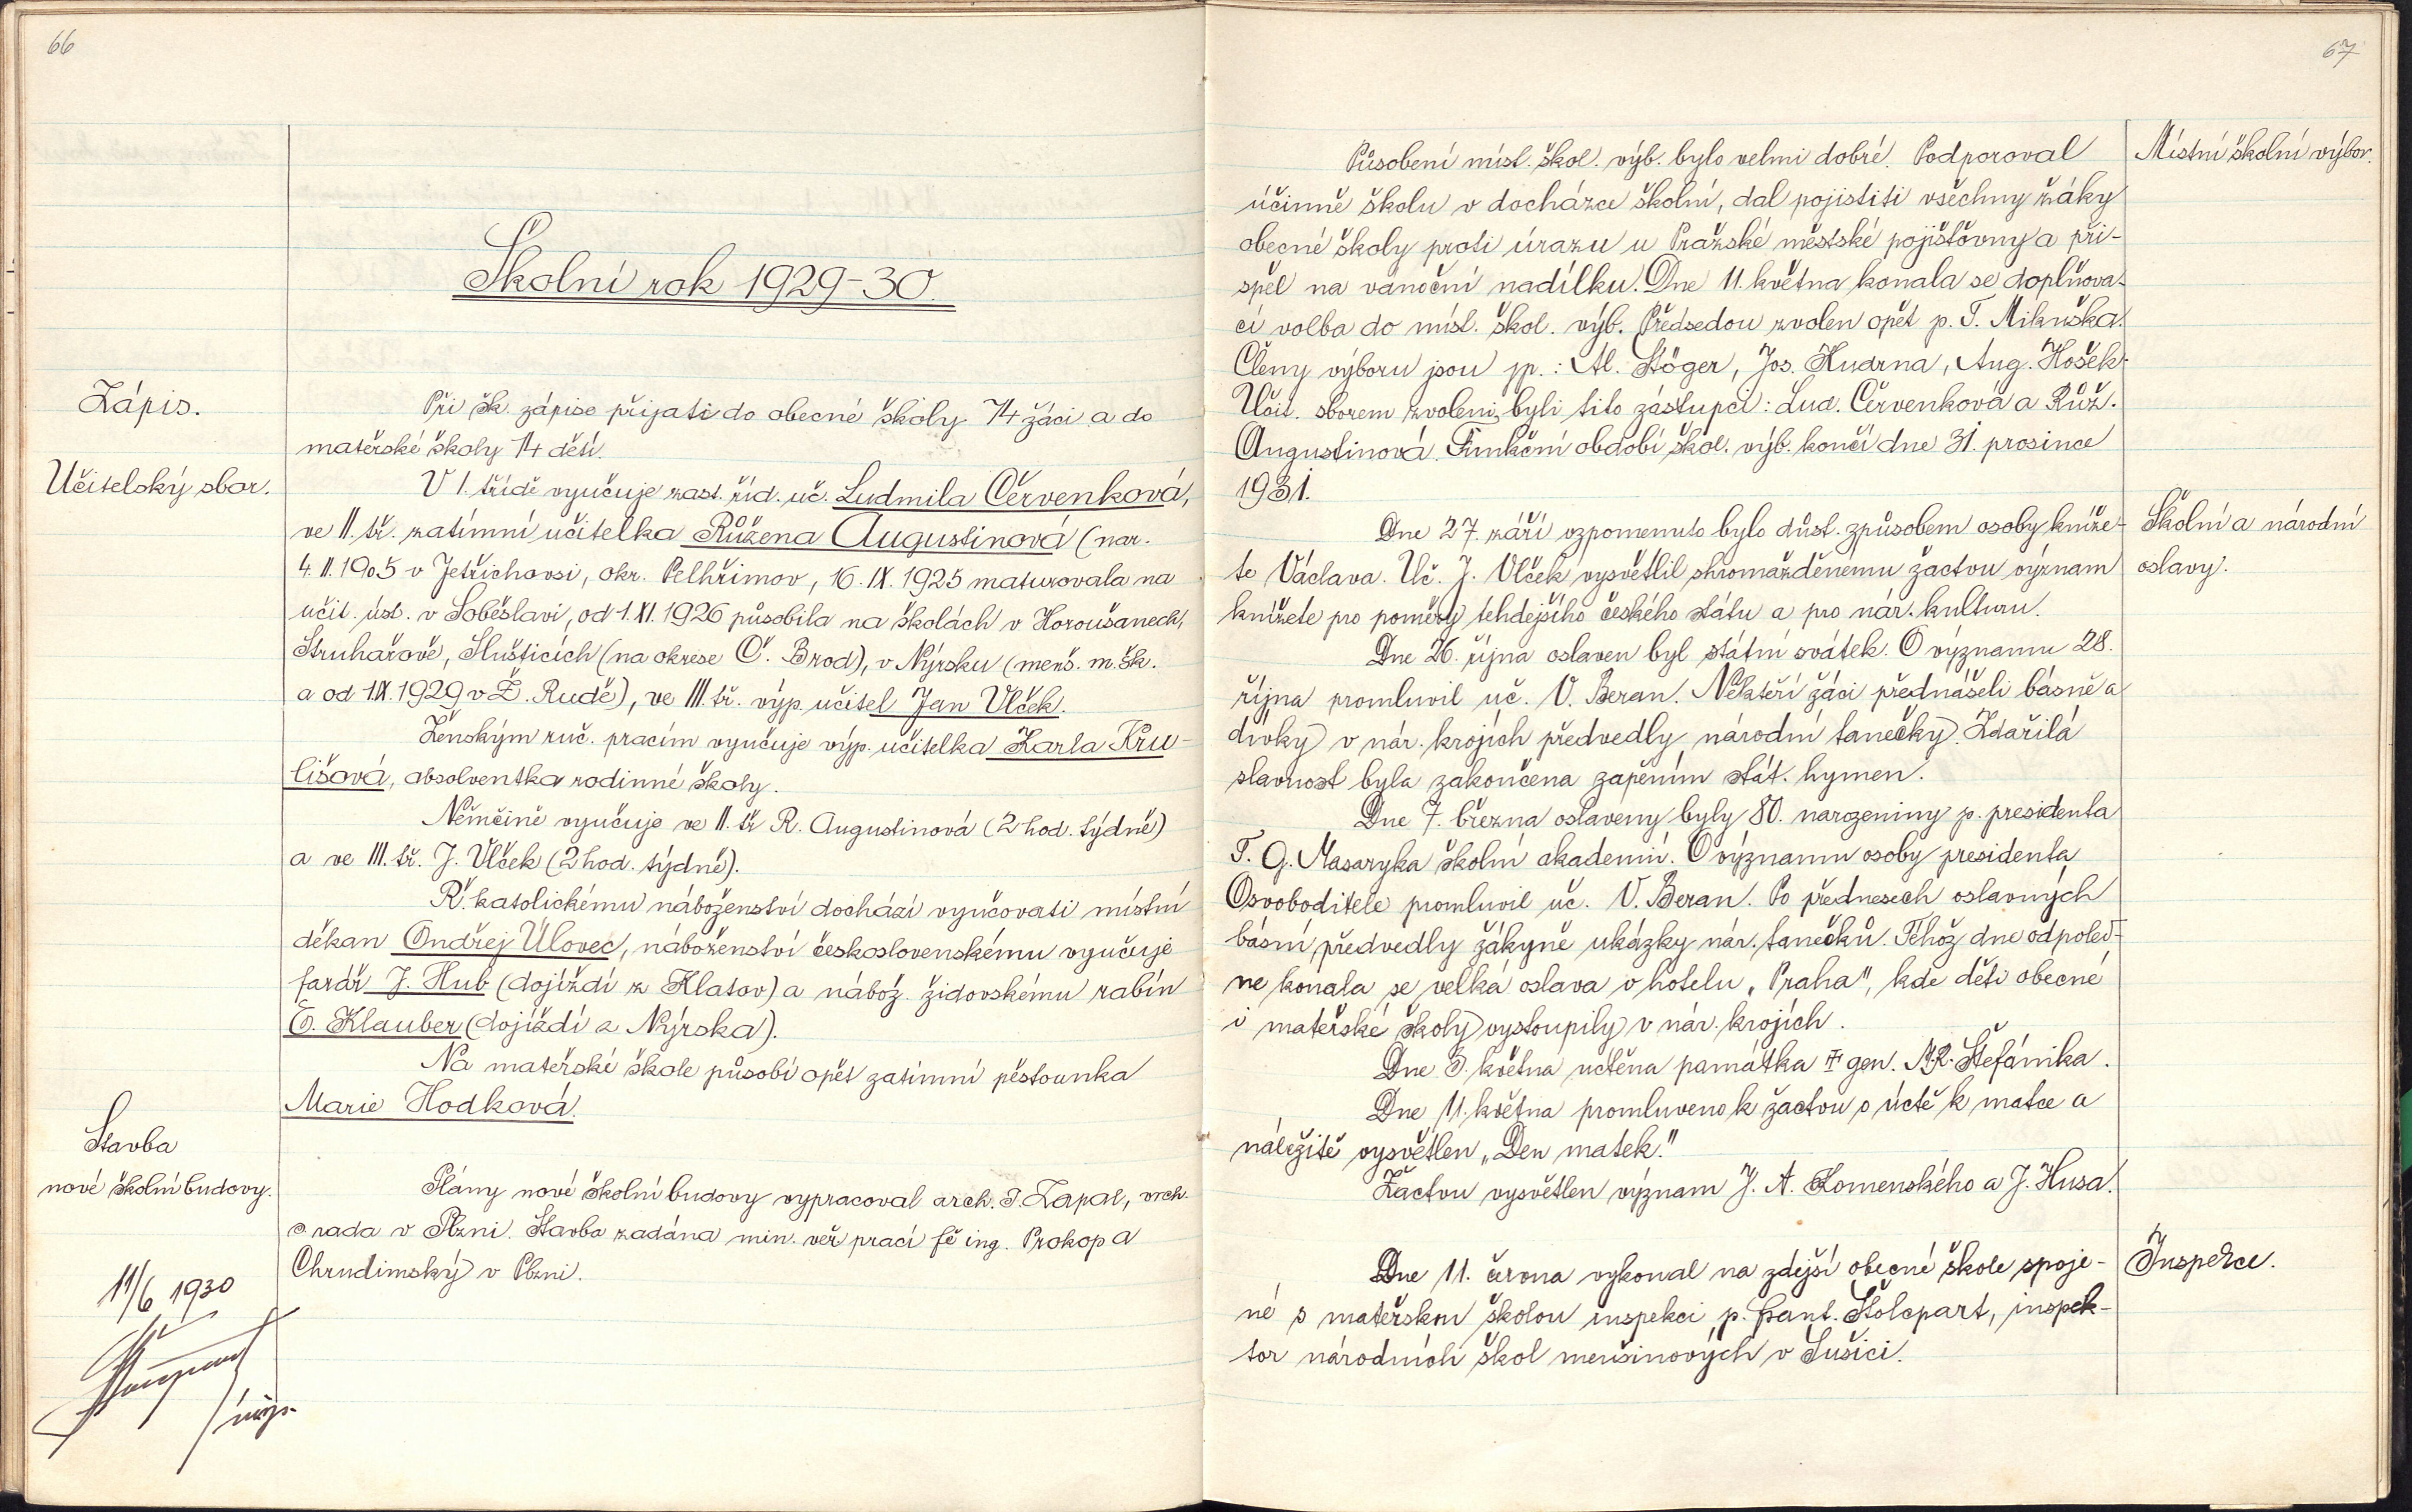 66
Školní rok 1929-30.
Zápis.
Při šk. zápise přijati do obecné školy 74 žáci a do
mateřské školy 14 dětí.
Učitelský sbor.
V I. třídě vyučuje zast. říd. uč. Ludmila Červenková,
ve II. tř. zatímní učitelka Růžena Augustinová (nar.
4. II. 1905 v Jetřichovsi, okr. Pelhřimov, 16. IX. 1925 maturovala na
učit. úst. v Soběslavi, od 1. XI. 1926 působila na školách v Horoušanech,
Struhařově, Slušticích (na okrese Č. Brod), v Nýrsku (menš. m. šk.
a od 1. IX. 1929 v Ž. Rudě), ve III. tř. výp. učitel Jan Vlček.
Ženským ruč. pracím vyučuje výp. učitelka Karla Kru-
lišová, absolventka rodinné školy.
Němčině vyučuje ve II. tř. R. Augustinová (2 hod. týdně)
a ve III. tř. J. Vlček (2 hod. týdně).
Ř. katolickému náboženství dochází vyučovati místní
děkan Ondřej Úlovec, náboženství československému vyučuje
farář J. Hub (dojíždí z Klatov) a nábož. židovskému rabín
E. Klauber (dojíždí z Nýrska).
Na mateřské škole působí opět zatímní pěstounka
Marie Hodková.
Stavba
nové školní budovy.
Plány nové školní budovy vypracoval arch. J. Zapal, vrch.
rada v Plzni. Stavba zadána min. veř. prací fě ing. Prokop a
Chrudimský v Plzni.
11/6 1930
insp.
67
Místní školní výbor.
Působení míst. škol. výb. bylo velmi dobré. Podporoval
účinně školu v docházce školní, dal pojistiti všechny žáky
obecné školy proti úrazu u Pražské městské pojišťovny a při-
spěl na vánoční nadílku. Dne 11. května konala se doplňova-
cí volba do míst. škol. výb. Předsedou zvolen opět p. T. Mikuška.
Členy výboru jsou pp.: Al. Stöger, Jos. Kudrna, Aug. Hošek.
Učit. sborem zvoleni byli tito zástupci: Lud. Červenková a Růž.
Augustinová. Funkční období škol. výb. končí dne 31. prosince
1931.
Školní a národní
oslavy.
Dne 27. září vzpomenuto bylo důst. způsobem osoby kníže-
te Václava. Uč. J. Vlček vysvětlil shromážděnému žactvu význam
knížete pro poměry tehdejšího českého státu a pro nár. kulturu.
Dne 26. října oslaven byl státní svátek. O významu 28.
října promluvil uč. V. Beran. Někteří žáci přednášeli básně a
dívky v nár. krojích předvedly národní tanečky. Zdařilá
slavnost byla zakončena zapěním stát. hymen.
Dne 7. března oslaveny byly 80. narozeniny p. presidenta
T. G. Masaryka školní akademií. O významu osoby presidenta
Osvoboditele promluvil uč. V. Beran. Po přednesech oslavných
básní předvedly žákyně ukázky nár. tanečků. Téhož dne odpoled-
ne konala se velká oslava v hotelu „Praha", kde děti obecné
i mateřské školy vystoupily v nár. krojích.
Dne 3. května uctěna památka † gen. M. R. Štefánika.
Dne 11. května promluveno k žactvu o úctě k matce a
náležitě vysvětlen „Den matek."
Žactvu vysvětlen význam J. A. Komenského a J. Husa.
Inspekce.
Dne 11. června vykonal na zdejší obecné škole spoje-
né s mateřskou školou inspekci p. Frant. Štolcpart, inspek-
tor národních škol menšinových v Sušici.